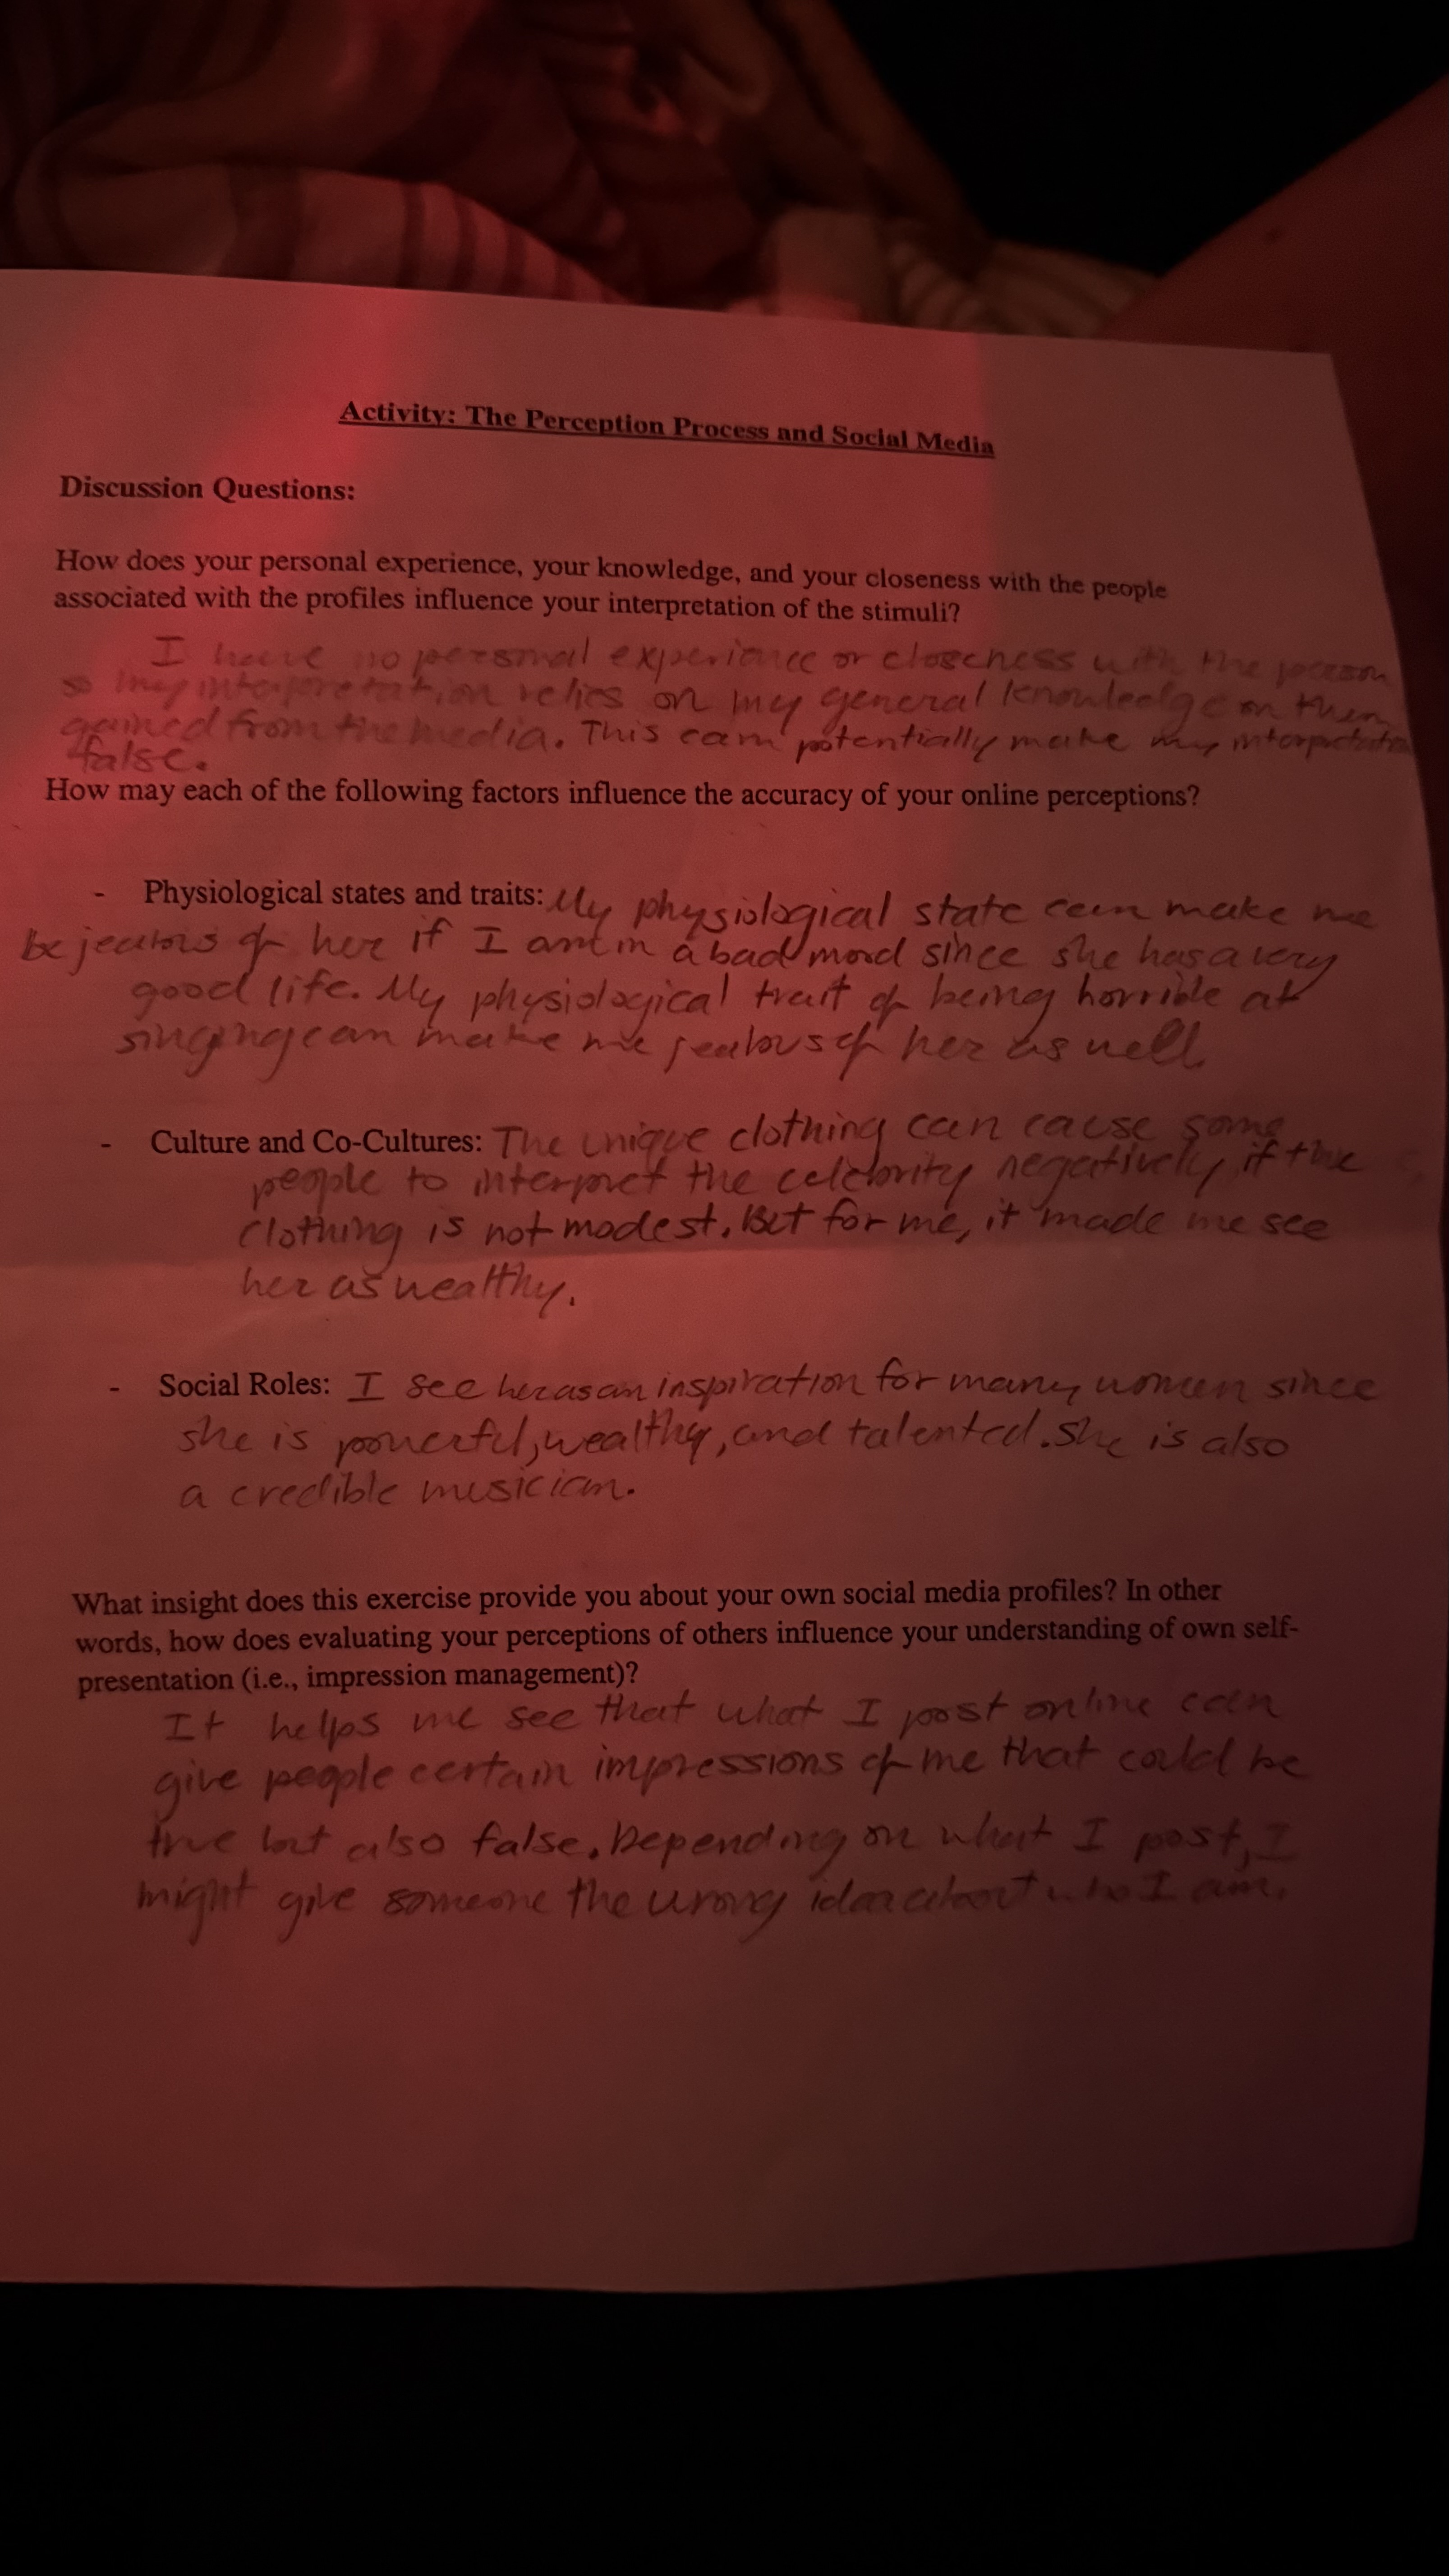 Activity: The Perception Process and Social Media
Discussion Questions:
How does your personal experience, your knowledge, and your closeness with the people
associated with the profiles influence your interpretation of the stimuli?
I have no personal experience or closeness with the person
so my interpretation relies on my general knowledge on them
gained from the media. This can potentially make my interpretation
false.
How may each of the following factors influence the accuracy of your online perceptions?
- Physiological states and traits: My physiological state can make me
be jealous of her if I am in a bad mood since she has a very
good life. My physiological trait of being horrible at
singing can make me jealous of her as well
- Culture and Co-Cultures: The unique clothing can cause some
people to interpret the celebrity negatively if the
clothing is not modest. But for me, it made me see
her as wealthy.
- Social Roles: I see her as an inspiration for many women since
she is powerful, wealthy, and talented. She is also
a credible musician.
What insight does this exercise provide you about your own social media profiles? In other
words, how does evaluating your perceptions of others influence your understanding of own self-
presentation (i.e., impression management)?
It helps me see that what I post online can
give people certain impressions of me that could be
true but also false. Depending on what I post, I
might give someone the wrong idea about who I am.